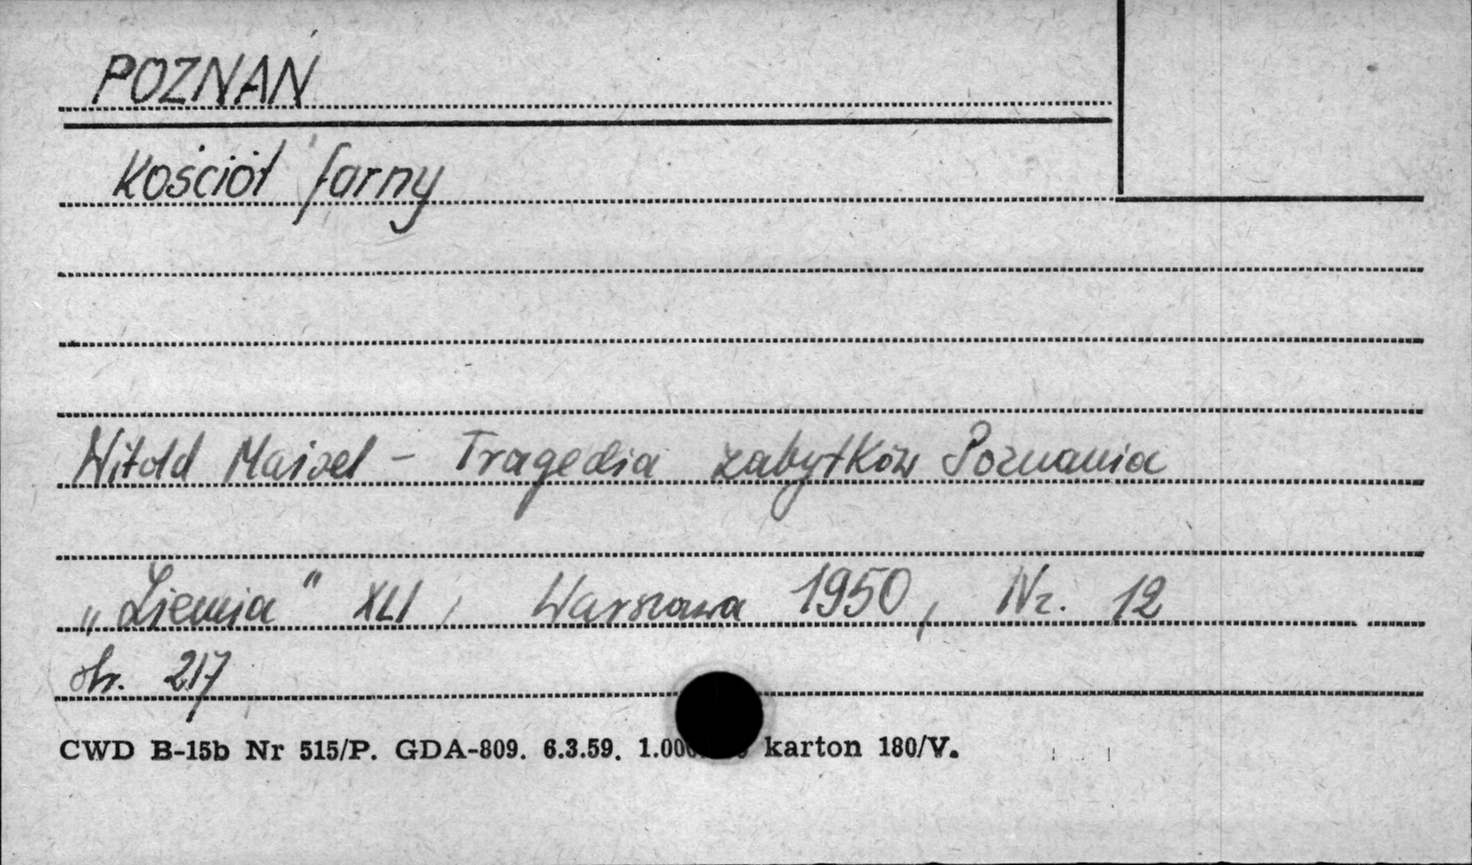 POZNAŃ
Kościół farny
Witold Maisel - Tragedia zabytków Poznania
„Ziemia" XLI, Warszawa 1950, Nr. 12
str. 217
CWD B-15b Nr 515/P. GDA-809. 6.3.59. karton 180/V.